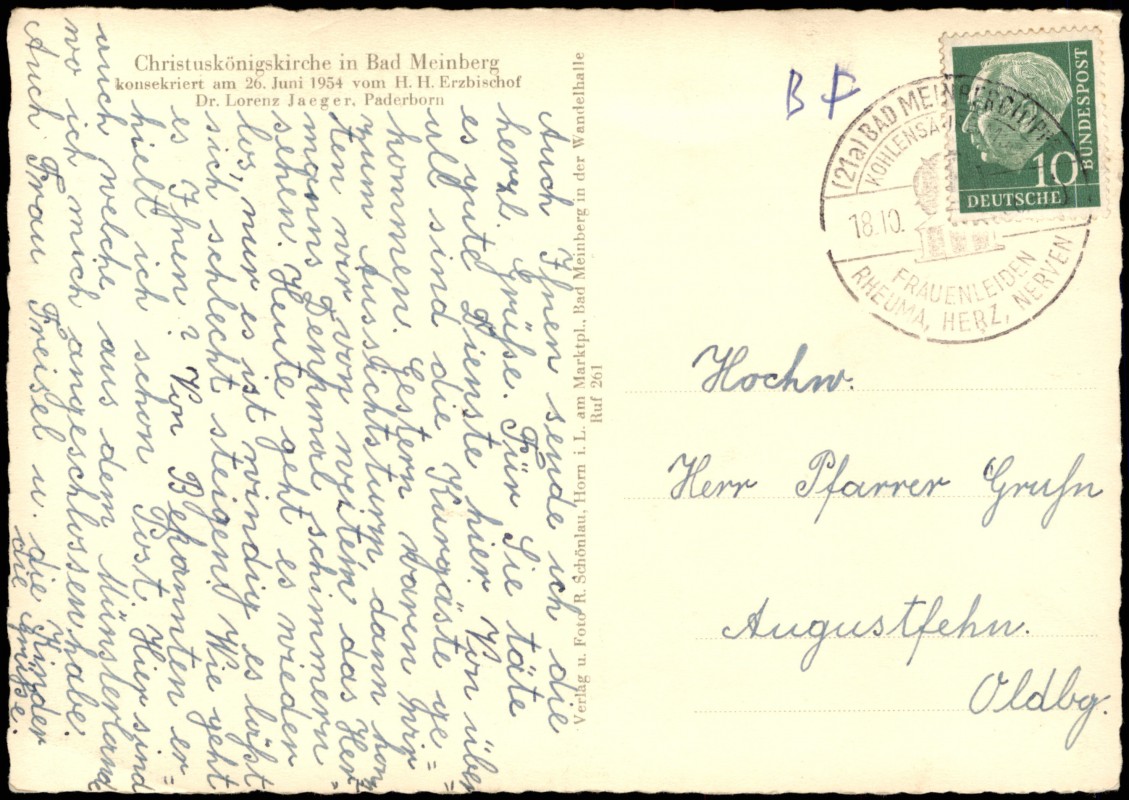 Christuskönigskirche in Bad Meinberg
konsekriert am 26. Juni 1954 vom H. H. Erzbischof
Dr. Lorenz Jaeger, Paderborn
Auch Ihnen sende ich die
herzl. Grüße. Für Sie täte
es gute Dienste hier. Von über
all sind die Kurgäste ge=
kommen. Gestern waren wir
zum Aussichtsturm, dann konn
ten wir von weitem das Her=
manns Denkmal schimmern
sehen. Heute geht es wieder
los, nur es ist windig es läßt
sich schlecht steigen. Wie geht
es Ihnen? Von Bekannten er=
hielt ich schon Post. Hier sind
auch welche aus dem Münsterland
wo ich mich angeschlossen habe.
Auch Frau Freisel u. die Kinder
die Grüße.
Verlag u. Foto R. Schönlau, Horn i. L. am Marktpl., Bad Meinberg in der Wandelhalle
Ruf 261
B F
(21a) BAD MEINBERG
KOHLENSÄ
18.10.
FRAUENLEIDEN
RHEUMA, HERZ, NERVEN
10
DEUTSCHE
BUNDESPOST
Hochw.
Herr Pfarrer Gruhn
Augustfehn.
Oldbg.